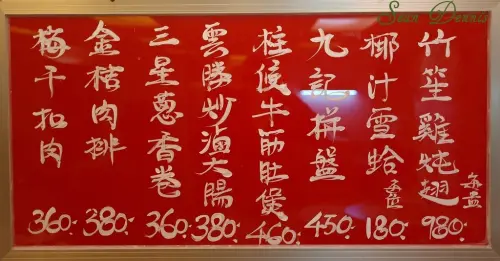 Sean Dennis
竹笙雞炖翅
每盅
980.
椰汁雪蛤
每盅
180.
九記拼盤
450.
柱侯牛筋肚煲
460.
雲勝炒滷大腸
380.
三星蔥香卷
360.
金桔肉排
380.
梅干扣肉
360.